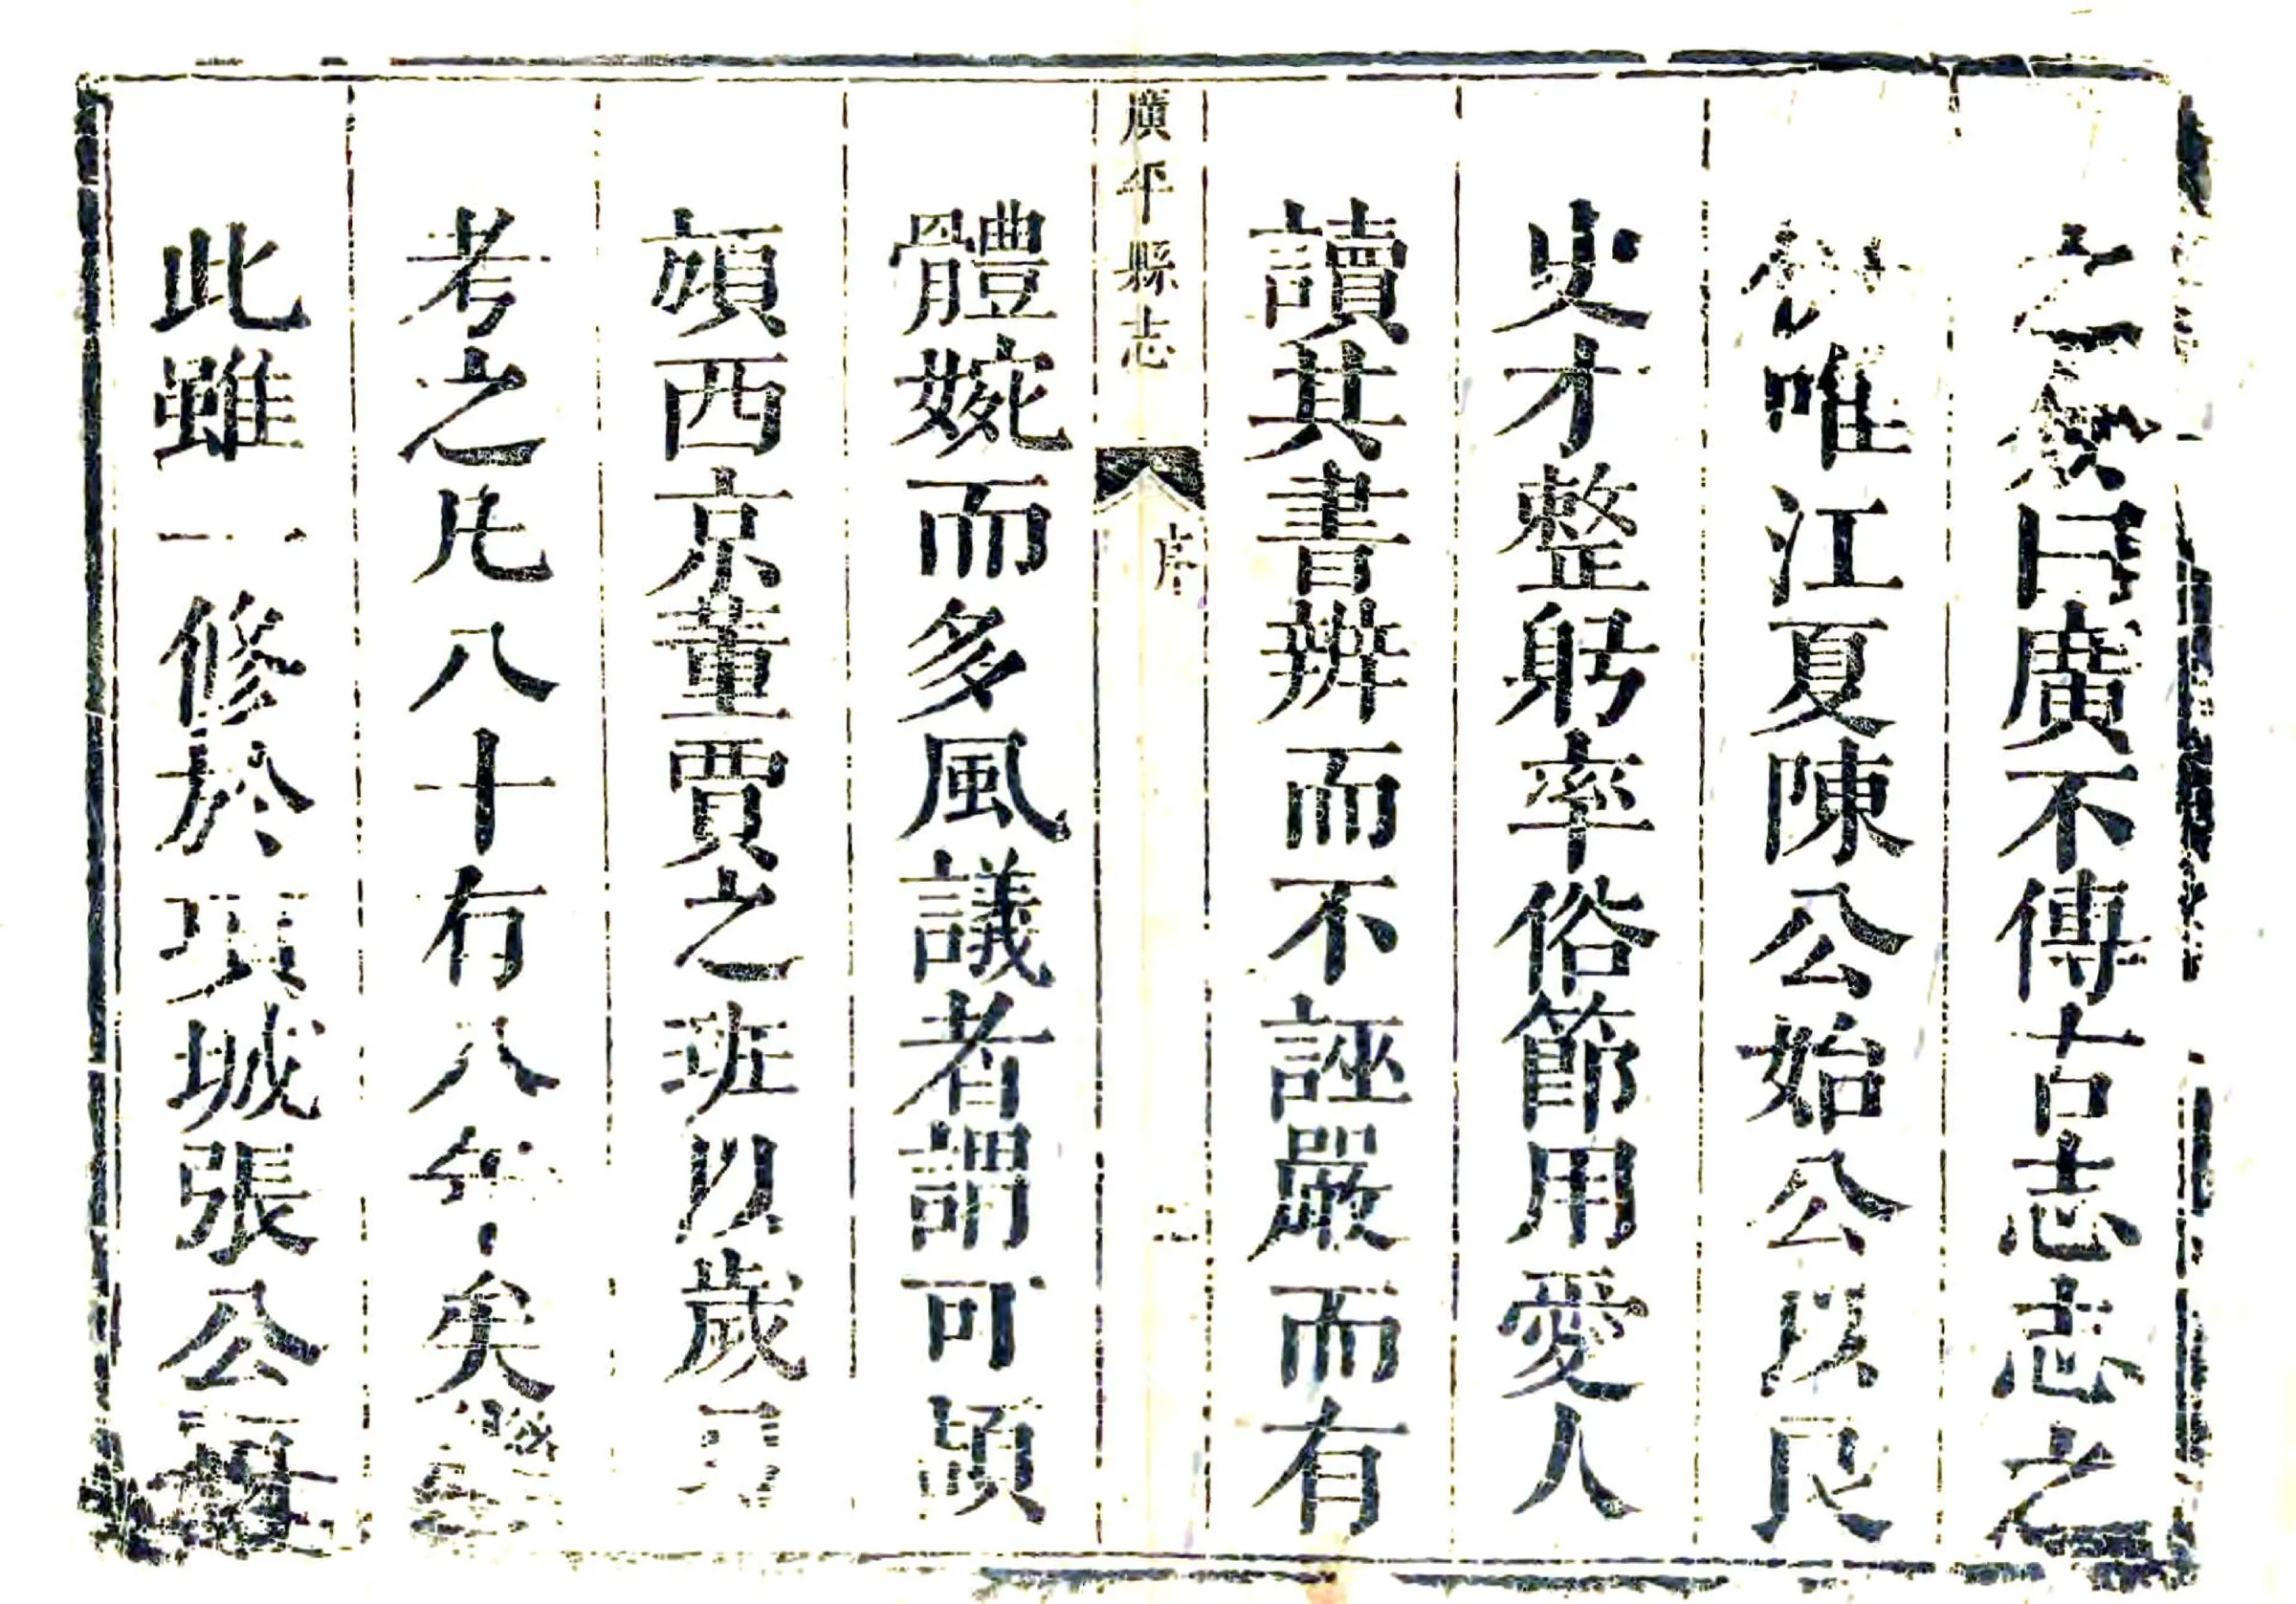 之歎曰廣不傳古志志之
唯江夏陳公始公以良
史才整躬率俗節用愛人
讀其書辨而不誣嚴而有
廣平縣志
序
二
體婉而多風議者謂可頡
頏西京董賈之班以歲月
考之凡八十有八年矣
此雖一修於項城張公